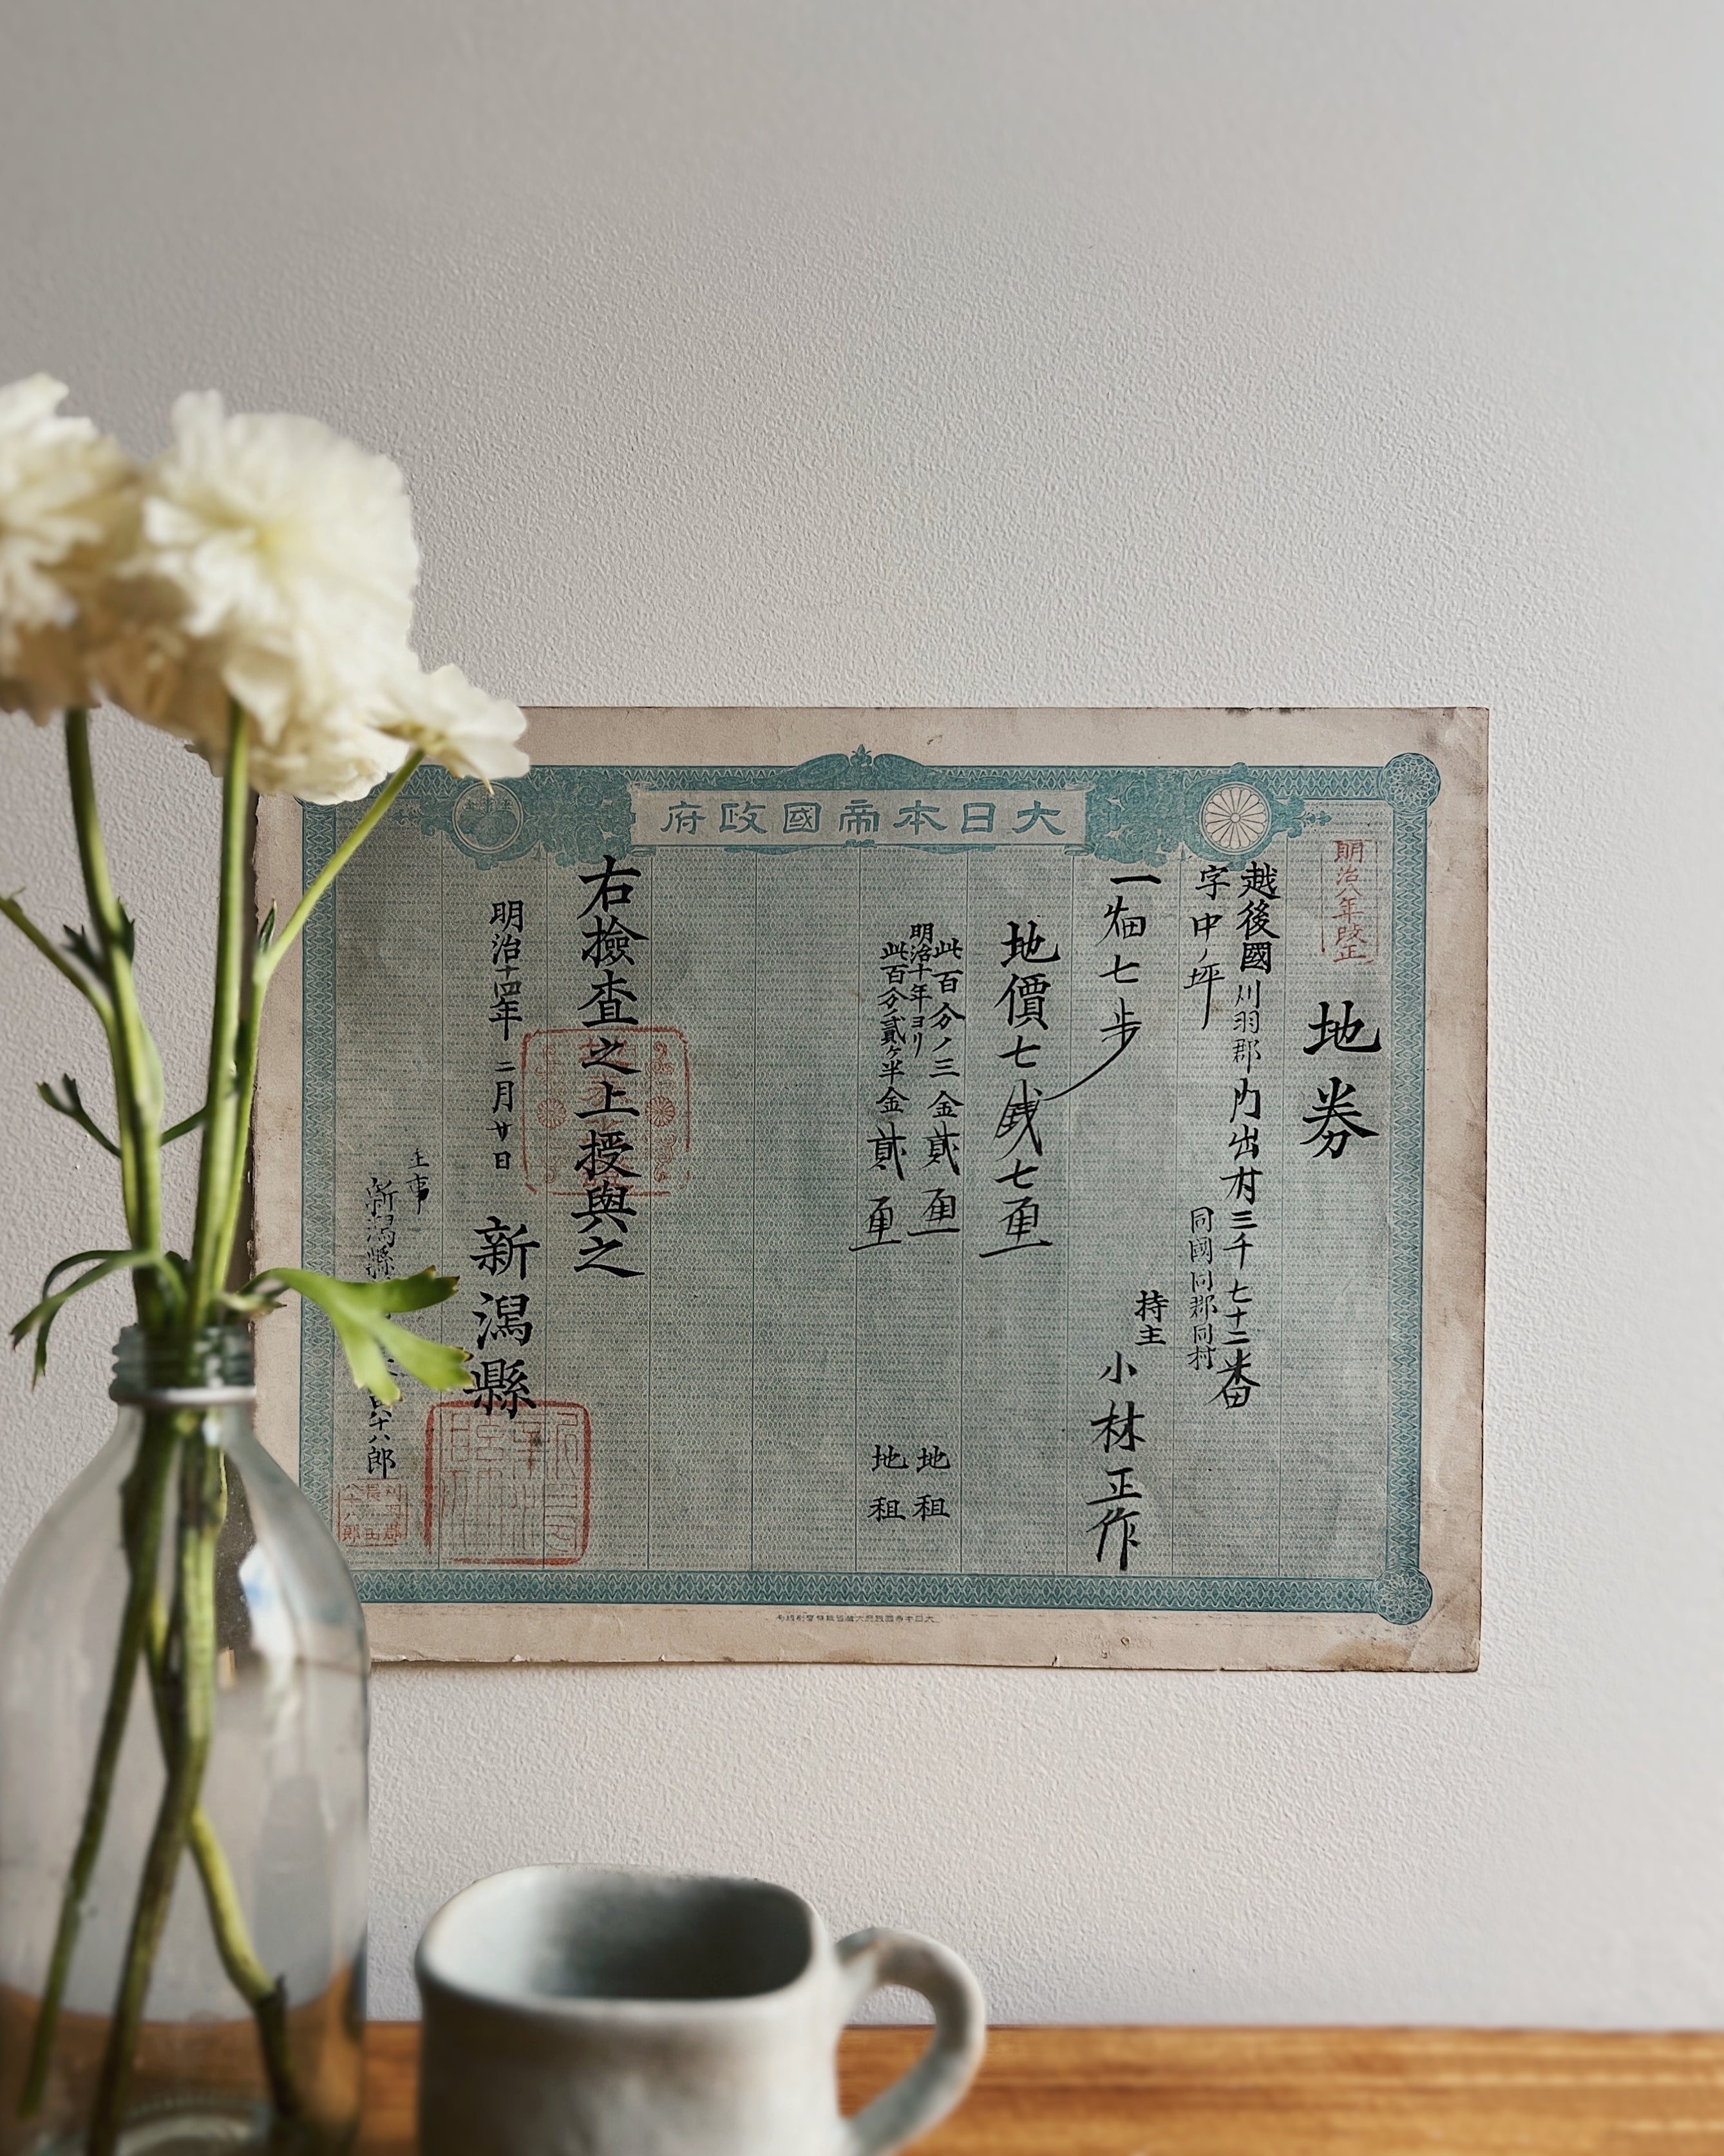 大日本帝國政府
明治八年改正
地券
越後國刈羽郡内出村三千七十二番
字中ノ坪
同國同郡同村
一畑七歩
持主 小林正作
地價七銭七厘
此百分ノ三金貳厘 地租
明治十年ヨリ
此百分ノ貳ヶ半金貳厘 地租
右撿査之上授與之
明治十四年二月廿日
新潟縣
主事
新潟縣
郎